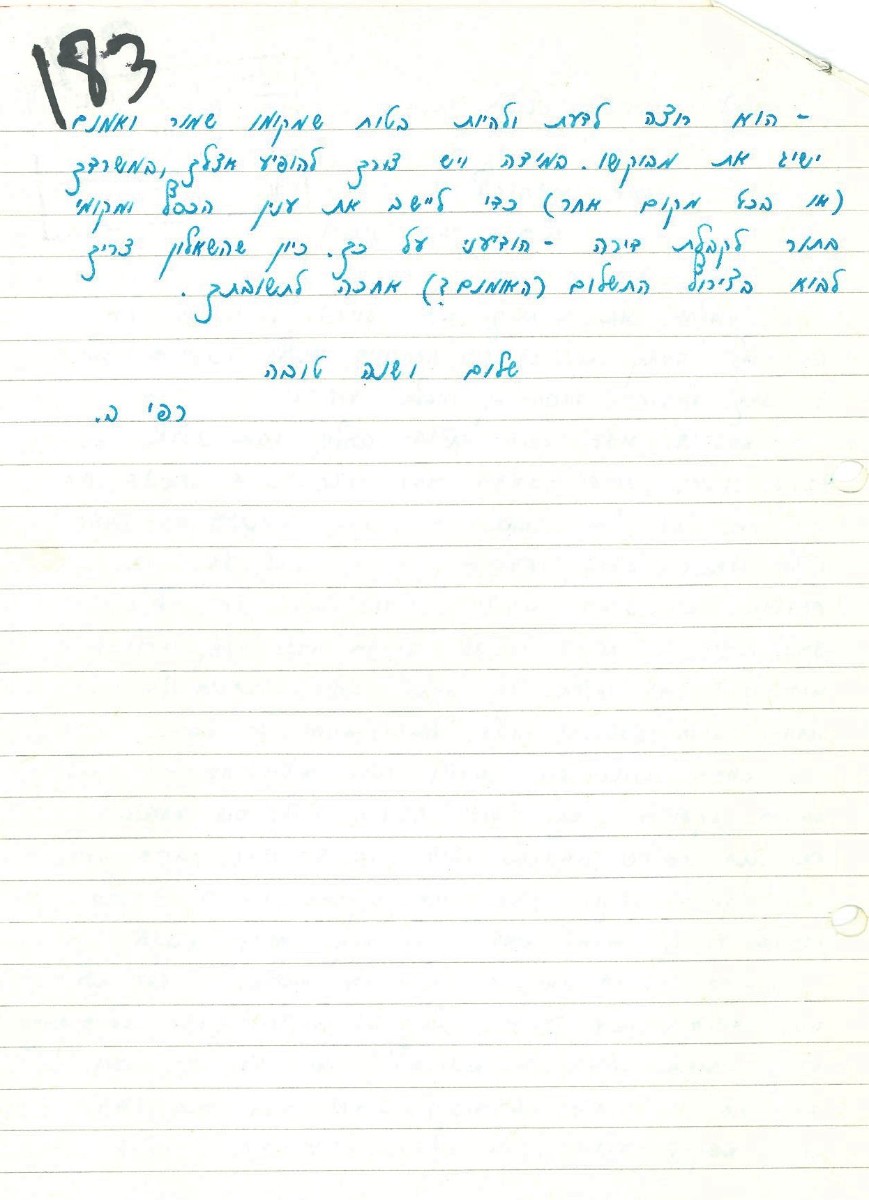 183
- הוא רוצה לדעת ולהיות בטוח שמקומו שמור ואמנם
ישיג את מבוקשו. במידה ויש צורך להופיע אצלך, ובמשרדך
(או בכל מקום אחר) כדי ליישב את ענין הכסף ומקומי
בתור לקבלת דירה - הודיעני על כך. כיון שהשאלון צריך
לבוא בצירוף התשלום (האומנם?) אחכה לתשובתך.
שלום ושנה טובה
רפי ב.